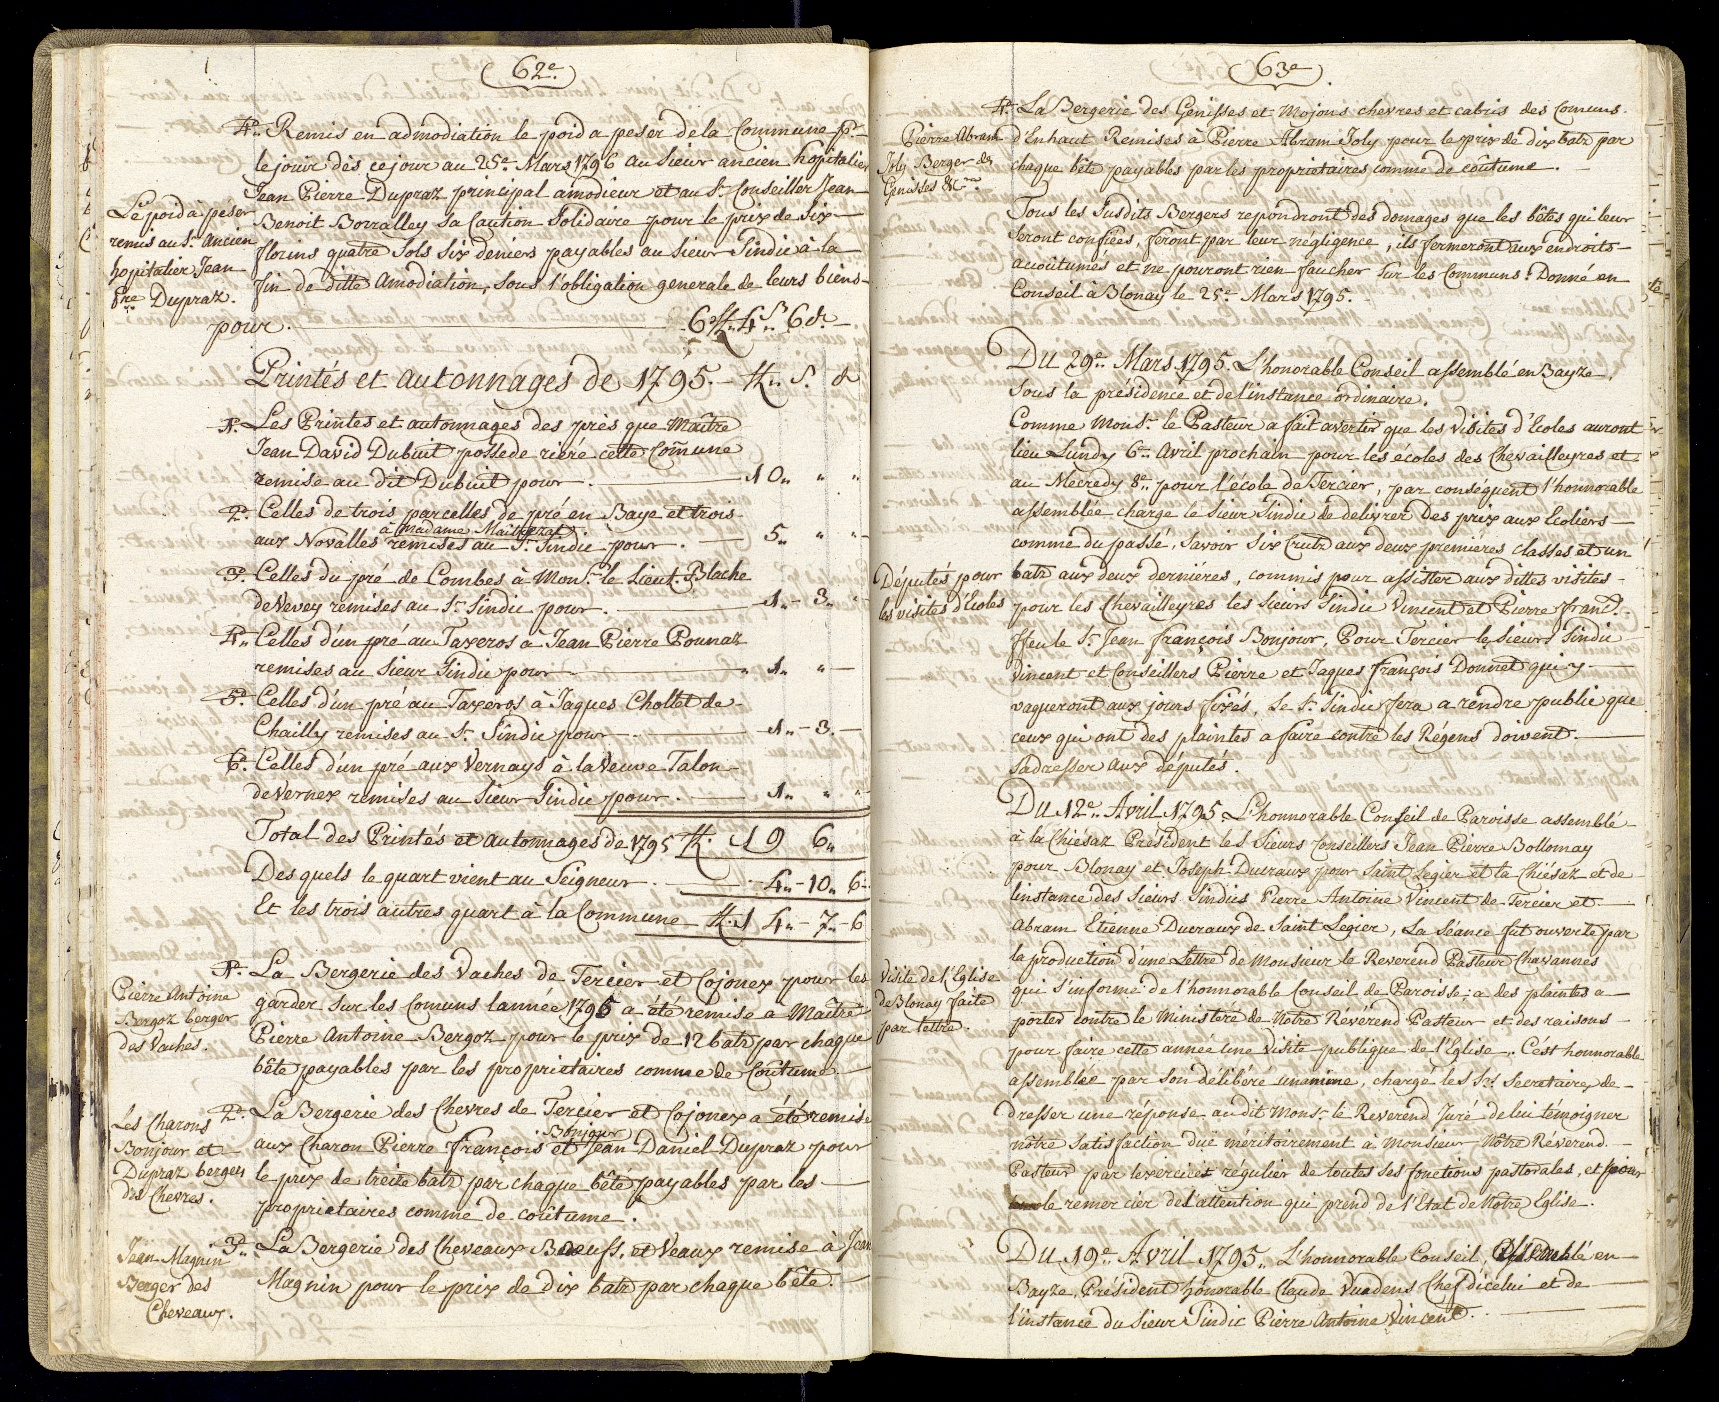 62e.
4°. Remis en admodiation le poid a peser de la Commune p.r
le jouir dès ce jour au 25e. Mars 1796 au Sieur ancien hopitalier
Jean Pierre Dupraz principal amodieur et au Sr. Conseiller Jean
Benoit Borralley sa Caution Solidaire pour le prix de Six
florins quatre Sols Six deniers payables au Sieur Sindic à la
fin de ditte Amodiation, Sous l'obligation generale de leurs biens
pour. 6 ff. 4 S. 6 d.
Le poid à péser
remis au Sr. Ancien
hopitalier Jean
Pre. Dupraz.
Printés et Autonnages de 1795. ff. S. d
1°. Les Printes et autonnages des prés que Maître
Jean David Dubuit possede rière cette Comune
remise au dit Dubuit pour. 10 " "
2°. Celles de trois parcelles de pré en Baye et trois
à Madame Maîtrezat
aux Novalles remises au Sr. Sindic pour. 5 " "
3°. Celles du pré de Combes à Monsr. le Lieut. Blache
de Vevey remises au Sr. Sindic pour. 1 " 3 "
4°. Celles d'un pré au Taxeros à Jean Pierre Pounaz
remises au Sieur Sindic pour " 1 "
5°. Celles d'un pré au Taxeros à Jaques Chollet de
Chailly remises au Sr. Sindic pour 1 " 3.
6°. Celles d'un pré aux Vernays à la Veuve Talon
de Vernex remises au Sieur Sindic pour. 1 " " "
Total des Printés et Automnages de 1795 ff. 19 6 "
Des quels le quart vient au Seigneur. 4 " 10 " 6
Et les trois autres quart à la Commune ff. 14 " 7 " 6
1°. La Bergerie des Vaches de Tercier et Cojonex pour les
garder sur les Comuns l'année 1795 a été remise a Maître
Pierre Antoine Bergoz pour le prix de 12 batz par chaque
bête payables par les proprietaires comme de Coutume
Pierre Antoine
Bergoz berger
des Vaches.
2°. La Bergerie des Chevres de Tercier et Cojonex a été remise
Bonjour
aux Charon Pierre François et Jean Daniel Dupraz pour
le prix de treize batz par chaque bête payables par les
proprietaires comme de coutume.
Les Charons
Bonjour et
Dupraz bergers
des Chevres.
3°. La Bergerie des Cheveaux Boeufs. et Veaux remise à Jean
Magnin pour le prix de dix batz par chaque bête.
Jean Magnin
Berger des
Cheveaux.
63e
4°. La Bergerie des Génisses et Mojons chevres et cabris des Comuns
d'Enhaut Remises à Pierre Abram Joly pour le prix de dix batz par
chaque bête payables par les proprietaires comme de coutume.
Pierre Abram
Joly Berger des
Genisses &c.
Tous les Susdits Bergers repondront des domages que les bêtes qui leur
Seront confiées, feront par leur négligence, ils fermeront aux endroits
accoutumés et ne pouront rien faucher sur les Communs. Donné en
Conseil à Blonay le 25e. Mars 1795.
Du 29e. Mars 1795. L'honorable Conseil assemblé en Bayze,
Sous la présidence et de l'instance ordinaire.
Comme Monsr. le Pasteur a fait avertir que les Visites d'Ecoles auront
lieu Lundy 6e. Avril prochain pour les écoles des Chevailleyres et
au Mecredy 8e. pour l'école de Tercier, par conséquent l'honnorable
assemblée charge le Sieur Sindic de delivrer Des prix aux Ecoliers
comme du passé, Savoir Six Crutz aux deux premières classes et un
batz aux deux derniéres, commis pour assister aux dittes visites
pour les Chevailleyres les Sieurs Sindic Vincent et Pierre franc.s
ffeu le Sr. Jean françois Bonjour, Pour Tercier les Sieurs Sindic
Vincent et Conseillers Pierre et Jaques François Donnet qui y
vaqueront aux jours fixés, le Sr. Sindic fera a rendre public que
ceux qui ont des plaintes a faire contre les Régens doivent
sadresser aux députés.
Députés pour
les visites d'Ecoles
Du 12e. Avril 1795 L'honnorable Conseil de Paroisse assemblé
à la Chiésaz Président les Sieurs Conseillers Jean Pierre Bollomay
pour Blonay et Joseph Ducraux pour Saint Legier et la Chiésaz et de
l'instance des Sieurs Sindics Pierre Antoine Vincent de Tercier et
Abram Etienne Ducraux de Saint Légier, La Séance fut ouverte par
la production d'une Lettre de Monsieur le Reverend Pasteur Chavannes
qui S'informe: de l'honnorable Conseil de Paroisse: a des plaintes a
porter contre le Ministere de Notre Révérend Pasteur et des raisons
pour faire cette année une Visite publique de l'Eglise. C'ést honnorable
assemblée par Son délibéré unamime, chargé les Srs. Secretaires de
dresser une réponse au dit Monsr. le Reverend Juré de lui témoigner
nôtre Satisfaction düe méritoirement a Monsieur Nôtre Révérend
Pasteur par lexercices régulier de toutes ses fonctions pastorales, et pour
le remercier de l'attention qui prend de l'Etat de Notre Eglise.
Visite de l'Eglise
de Blonay faite
par lettre.
Du 19e. Avril 1795. L'honnorable Conseil, Assemblé en
Bayze, Président honorable Claude Vuadens Chef dicelui et de
l'instance du Sieur Sindic Pierre Antoine Vincent.